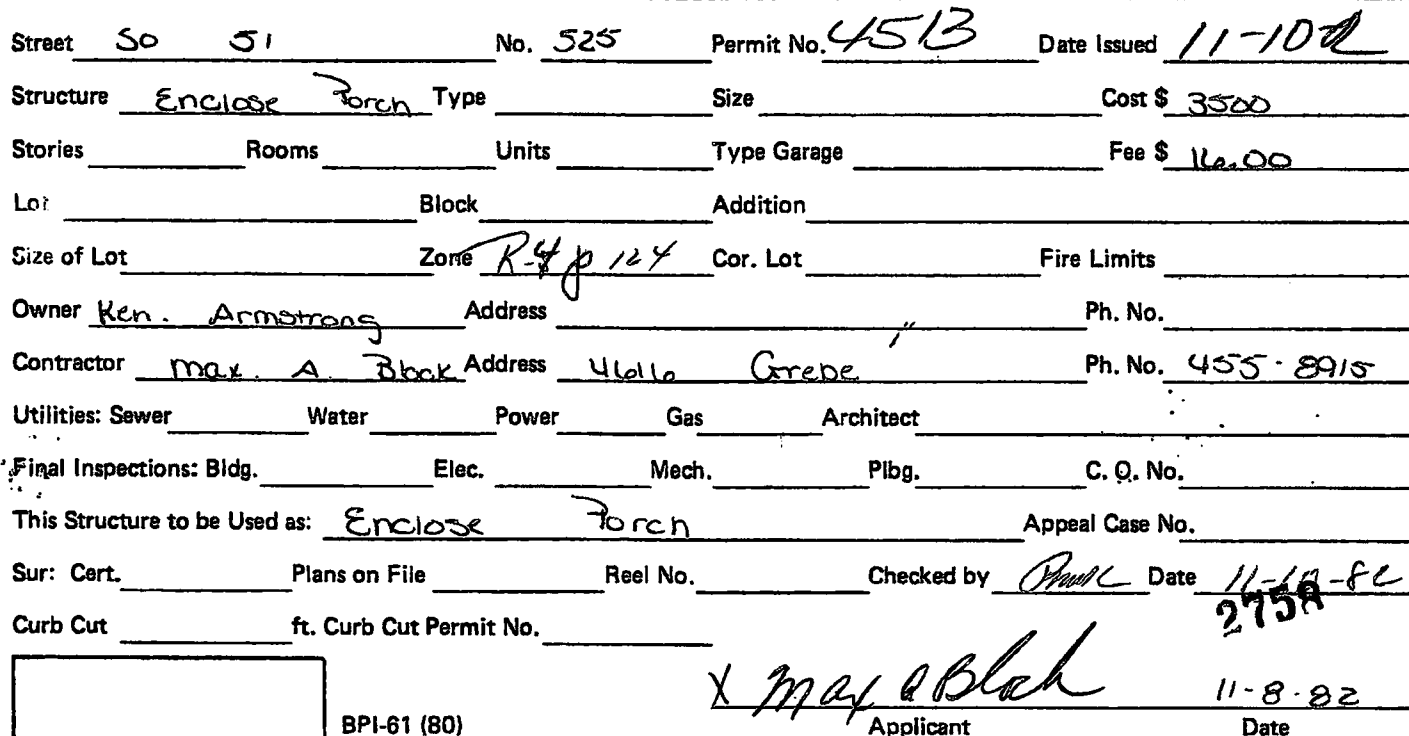 Street So 51 No. 525 Permit No. 4513 Date Issued 11-10-82
Structure Enclose Porch Type Size Cost $ 3500
Stories Rooms Units Type Garage Fee $ 16.00
Lot Block Addition
Size of Lot Zone R-4 p 124 Cor. Lot Fire Limits
Owner Ken. Armstrong Address Ph. No.
Contractor Max. A. Block Address 4616 Grebe Ph. No. 455-8915
Utilities: Sewer Water Power Gas Architect
Final Inspections: Bldg. Elec. Mech. Plbg. C. O. No.
This Structure to be Used as: Enclose Porch Appeal Case No.
Sur: Cert. Plans on File Reel No. Checked by Date 11-10-82
2758
Curb Cut ft. Curb Cut Permit No.
X Max A Block 11-8-82
BPI-61 (80) Applicant Date